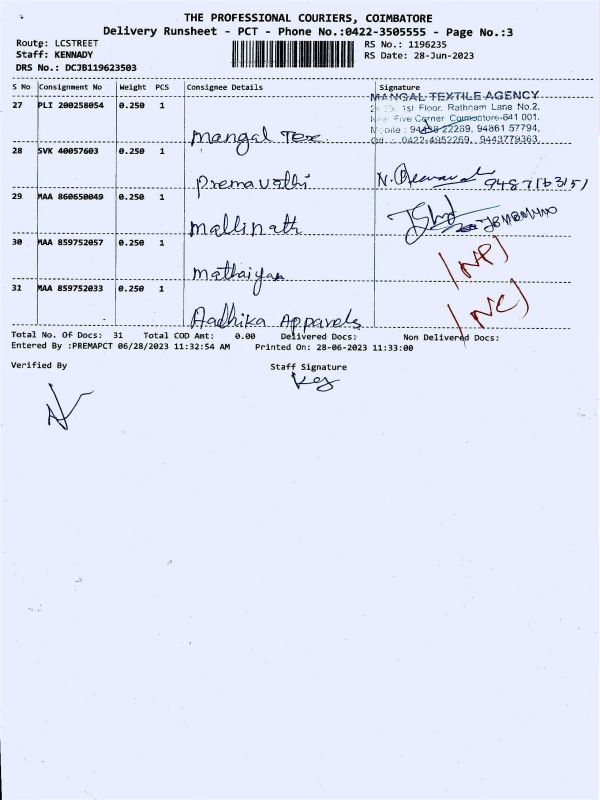 THE PROFESSIONAL COURIERS, COIMBATORE
Delivery Runsheet - PCT - Phone No.:0422-3505555 - Page No.:3
Route: LCSTREET
Staff: KENNADY
DRS No.: DCJB119623503
RS No.: 1196235
RS Date: 28-Jun-2023
S No Consignment No Weight PCS Consignee Details Signature
27 PLI 200258054 0.250 1
Mangal Tex
MANGAL TEXTILE AGENCY
1st Floor, Rathnam Lane No.2,
Five Corner Coimbatore-641 001.
22289, 94861 57794,
0422-4952269, 9443779363
28 SVK 40057603 0.250 1
Premavathi
9487163151
29 MAA 860650049 0.250 1
Mallinath
30 MAA 859752057 0.250 1
Mathaiyan
NP
31 MAA 859752033 0.250 1
Aadhika Apparels
NC
Total No. Of Docs: 31 Total COD Amt: 0.00 Delivered Docs: Non Delivered Docs:
Entered By :PREMAPCT 06/28/2023 11:32:54 AM Printed On: 28-06-2023 11:33:00
Verified By Staff Signature